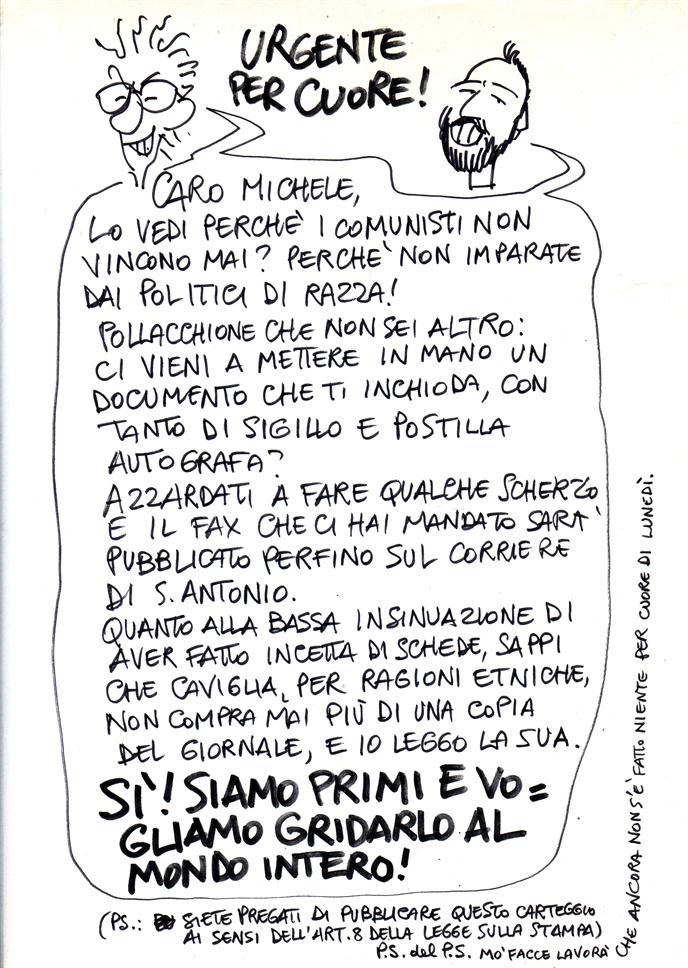 URGENTE
PER CUORE!
CARO MICHELE,
LO VEDI PERCHE' I COMUNISTI NON
VINCONO MAI? PERCHE' NON IMPARATE
DAI POLITICI DI RAZZA!
POLLACCHIONE CHE NON SEI ALTRO:
CI VIENI A METTERE IN MANO UN
DOCUMENTO CHE TI INCHIODA, CON
TANTO DI SIGILLO E POSTILLA
AUTOGRAFA?
AZZARDATI A FARE QUALCHE SCHERZO
E IL FAX CHE CI HAI MANDATO SARA'
PUBBLICATO PERFINO SUL CORRIERE
DI S. ANTONIO.
QUANTO ALLA BASSA INSINUAZIONE DI
AVER FATTO INCETTA DI SCHEDE, SAPPI
CHE CAVIGLIA, PER RAGIONI ETNICHE,
NON COMPRA MAI PIÙ DI UNA COPIA
DEL GIORNALE, E IO LEGGO LA SUA.
SI'! SIAMO PRIMI E VO=
GLIAMO GRIDARLO AL
MONDO INTERO!
(PS.: SIETE PREGATI DI PUBBLICARE QUESTO CARTEGGIO
AI SENSI DELL'ART. 8 DELLA LEGGE SULLA STAMPA)
P.S. del P.S. MO' FACCE LAVORÀ
CHE ANCORA NON S'È FATTO NIENTE PER CUORE DI LUNEDÌ.